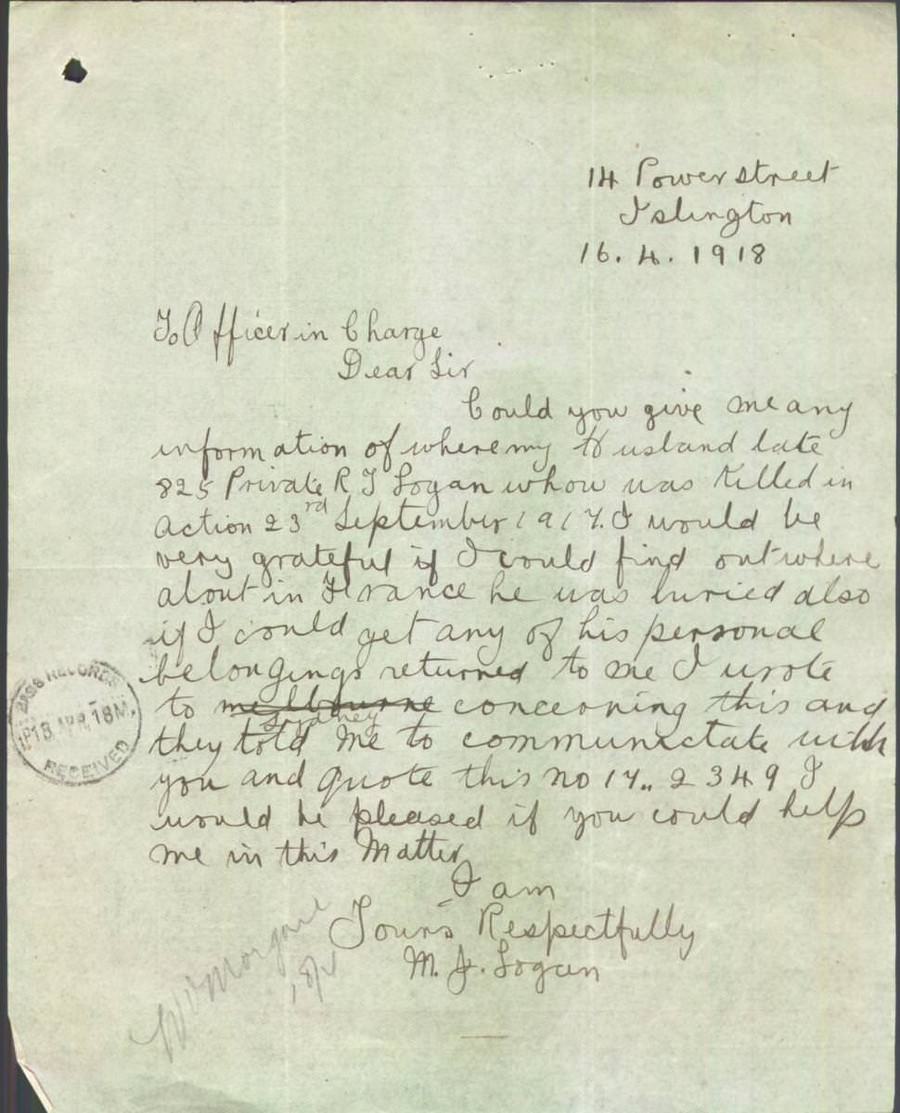 14 Power street
Islington
16. 4. 1918
To Officer in Charge
Dear Sir
Could you give me any
information of where my Husband late
825 Private R J Logan whow was killed in
action 23rd September 1917. I would be
very grateful if I could find out where
about in France he was buried also
if I could get any of his personal
belongings returned to me I wrote
to melbourne concerning this and
Sydney
they told me to communictate with
you and quote this no 17.. 2349 I
would be pleased if you could help
me in this Matter
I am
Yours Respectfully
M. J. Logan
BASE RECORDS
18 APR 18
RECEIVED